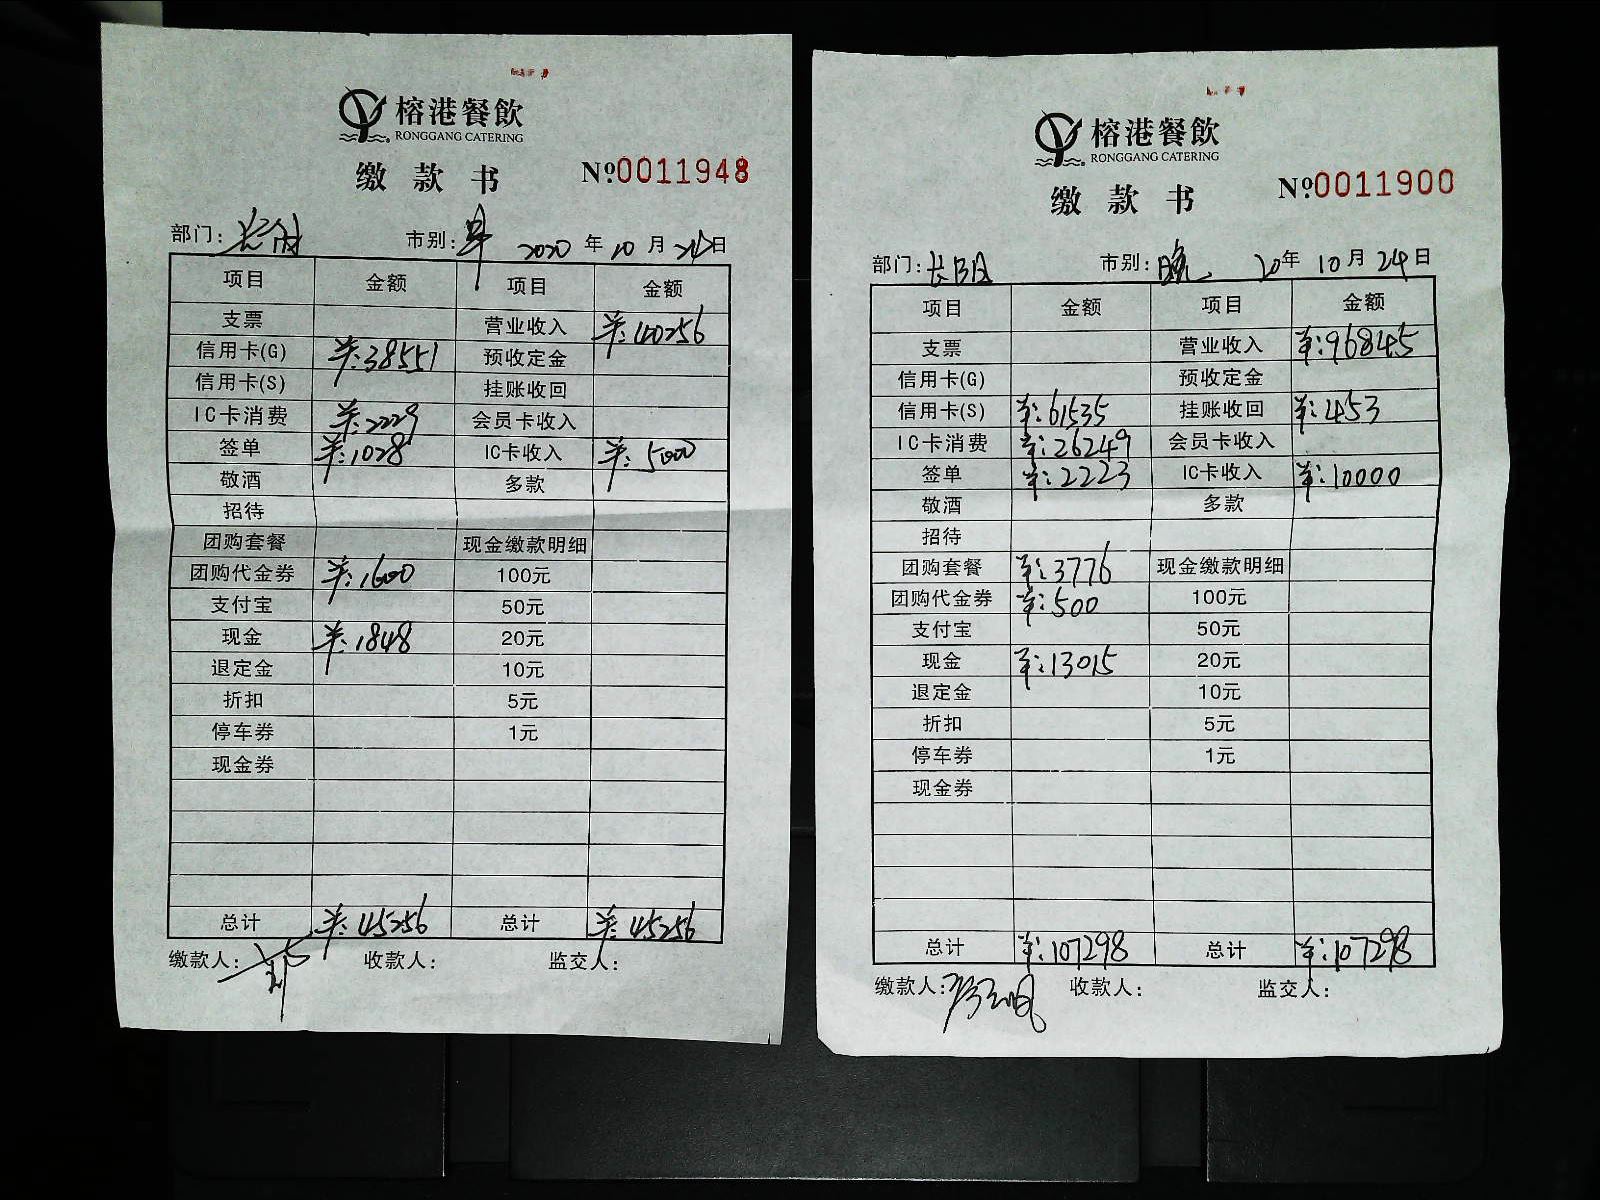 榕港餐飲
RONGGANG CATERING
缴款书 №0011948
部门: 市别:早 2020年10月24日
项目 金额 项目 金额
支票 营业收入 ¥:40256
信用卡(G) ¥:38551 预收定金
信用卡(S) 挂账收回
IC卡消费 ¥:2229 会员卡收入
签单 ¥:1028 IC卡收入 ¥:5000
敬酒 多款
招待
团购套餐 现金缴款明细
团购代金券 ¥:1600 100元
支付宝 50元
现金 ¥:1848 20元
退定金 10元
折扣 5元
停车券 1元
现金券
总计 ¥:45256 总计 ¥:45256
缴款人: 收款人: 监交人:
榕港餐飲
RONGGANG CATERING
缴款书 №0011900
部门: 市别:晚 20年10月24日
项目 金额 项目 金额
支票 营业收入 ¥:96845
信用卡(G) 预收定金
信用卡(S) ¥:61535 挂账收回 ¥:453
IC卡消费 ¥:26249 会员卡收入
签单 ¥:2223 IC卡收入 ¥:10000
敬酒 多款
招待
团购套餐 ¥:3776 现金缴款明细
团购代金券 ¥:500 100元
支付宝 50元
现金 ¥:13015 20元
退定金 10元
折扣 5元
停车券 1元
现金券
总计 ¥:107298 总计 ¥:107298
缴款人: 收款人: 监交人: